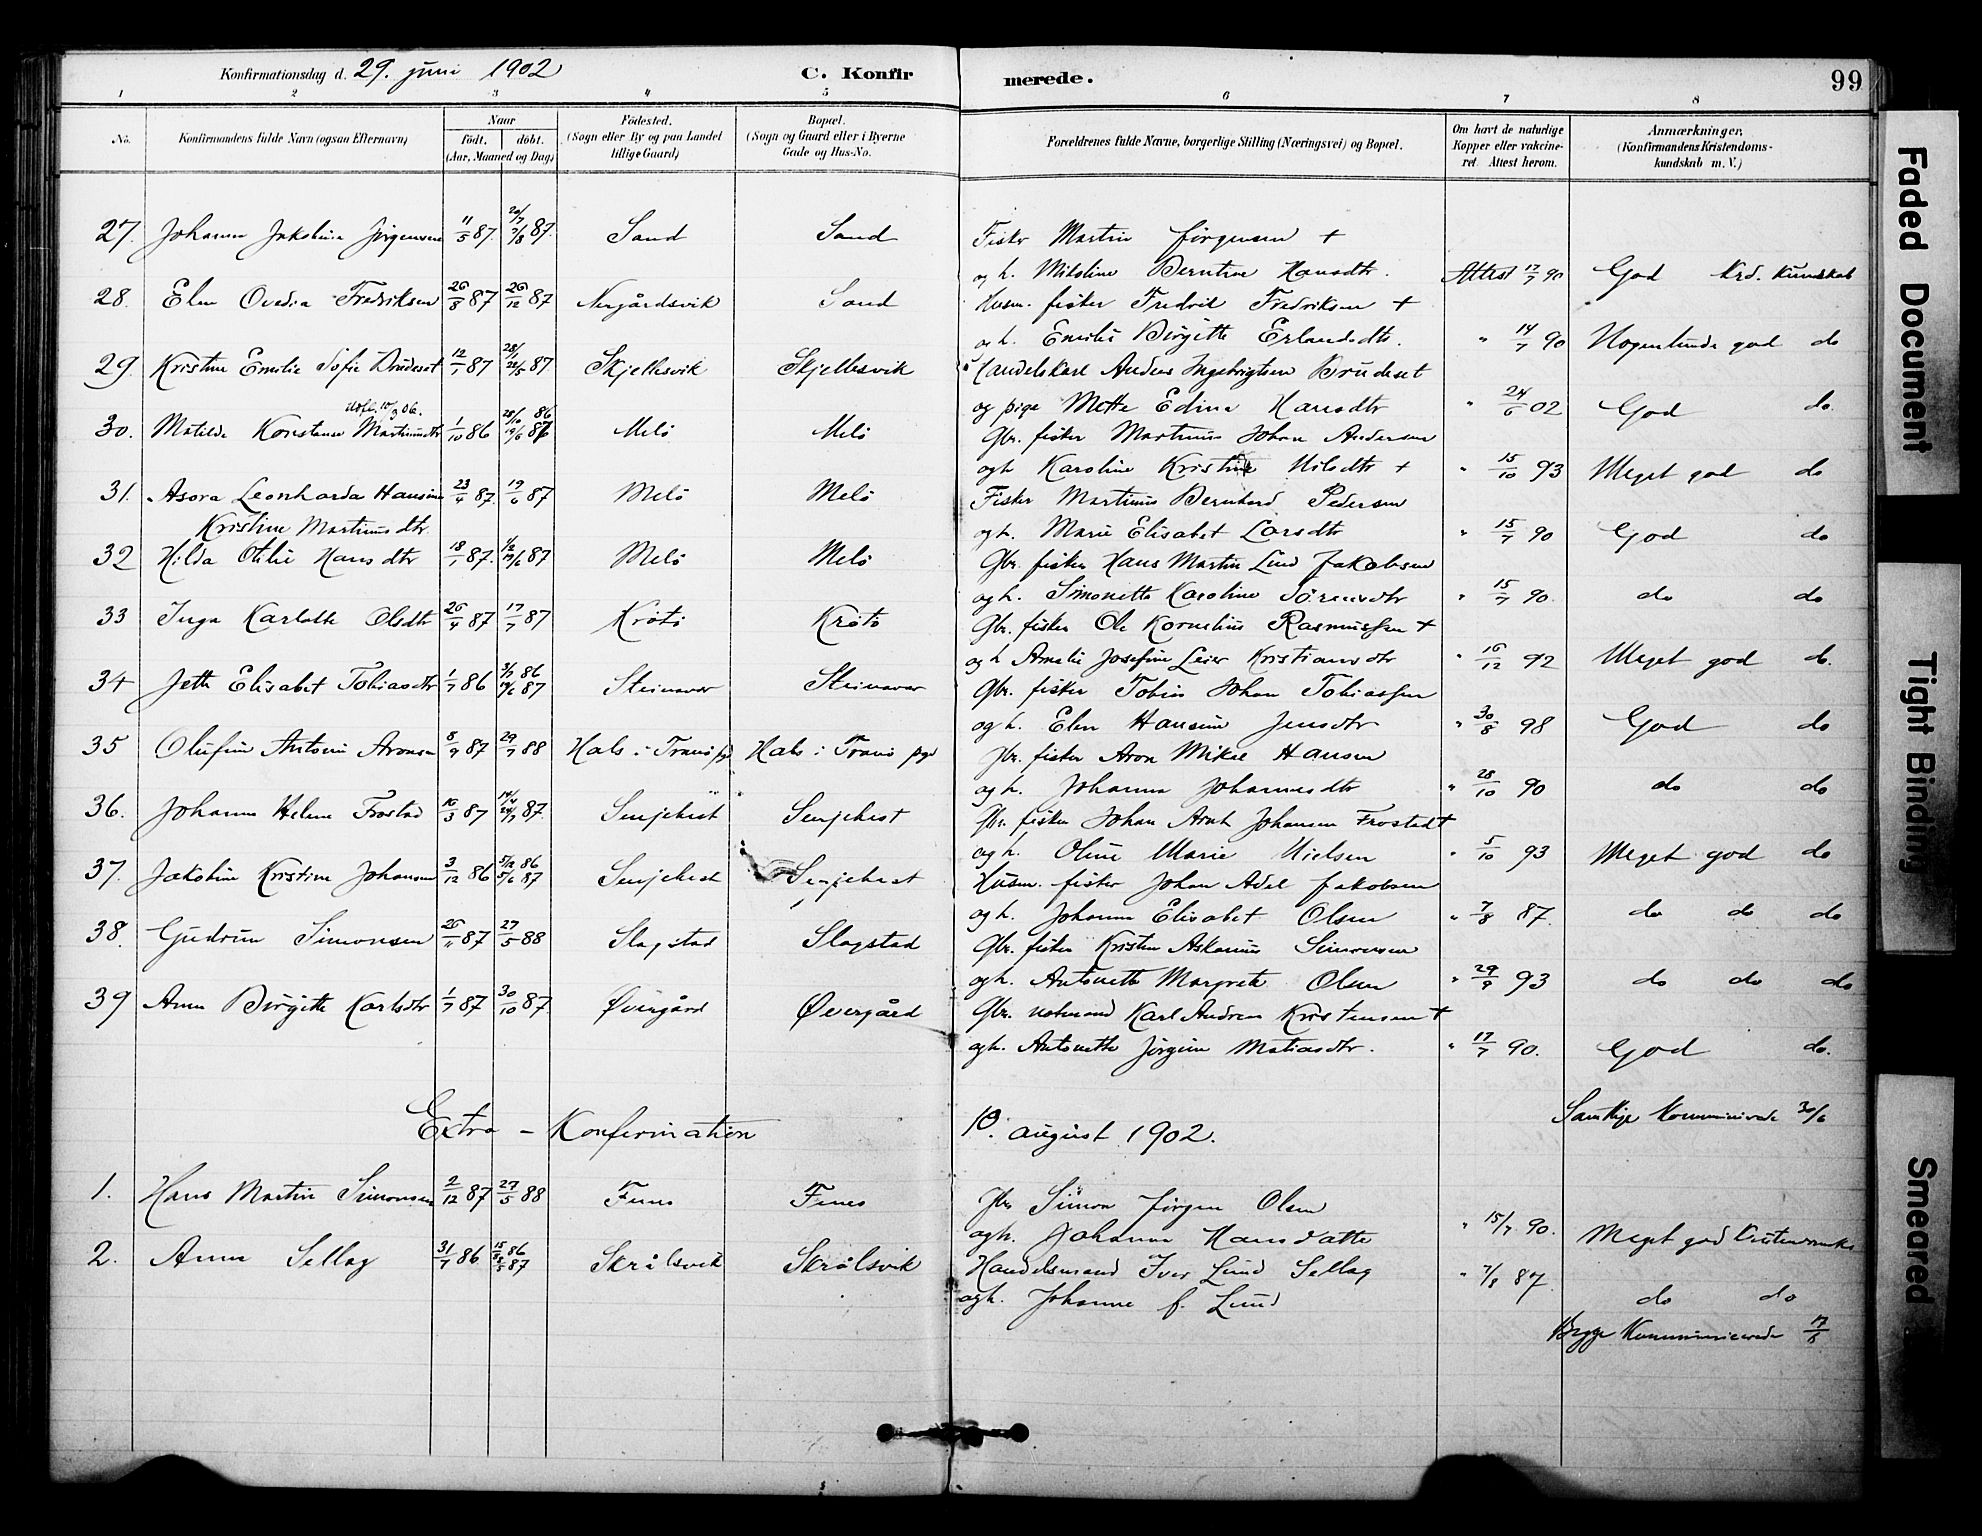 Konfirmationsdag d. 29. juni 1902 C. Konfirmerede. 99
1 2 3 4 5 6 7 8
No. Konfirmandens fulde Navn (ogsaa Efternavn) Naar født. døbt. (Aar, Maaned og Dag) Fødested. (Sogn eller By og paa Landet tillige Gaard) Bopæl. (Sogn og Gaard eller i Byerne Gade og Hus-No. Forældrenes fulde Navne, borgerlige Stilling (Næringsvei) og Bopæl. Om havt de naturlige Kopper eller vakcineret. Attest herom. Anmærkninger, (Konfirmandens Kristendomskundskab m. V.)
27. Johanna Jakobine Jørgensen 11/5 87. 20/7 7/8 87. Sand Sand Fisker Martin Jørgensen +
og h. Nikoline Berntine Hansdtr. Attest 17/7 90 God Krd. Kundskab
28. Elen Ovedia Fredriksen 26/8 87 26/12 87 Nergårdsvik Sand Husm. fisker Fredrik Fredriksen +
og h. Emilie Birgitte Erlandsdtr. " 14/7 90 Nogenlunde god do
29. Kristine Emilie Sofie Brudeset 12/1 87 87. Skjellesvik Skjellesvik Handelskarl Andreas Ingebrigtsen Brudeset
og pige Mette Edine Hansdtr " 24/6 02 God do.
30. Matilde Konstanse Martinusdtr 1/10 86 28/10 86 19/6 87 Melö Melö Gbr. fisker Martinus Johan Andersen
og h Karoline Kristine Nilsdtr + " 15/10 93 Meget god do
31. Asora Leonharda Hansine 23/4 87. 19/6 87 Melö Melö Fisker Martinus Bernhard Pedersen
Kristine Martinusdtr. og h. Marie Elisabet Larsdtr " 15/7 90 God do
32 Hilda Otilie Hansdtr 18/1 87. 1/2 19/6 87 Melö Melö Gbr. fisker Hans Martin Lind Jakobsen
og h. Simonette Karoline Sörensdtr " 15/7 90. do do
33 Inga Karlotte Olsdtr 26/4 87 17/7 87 Krötö Krötö Gbr. fisker Ole Kornelius Rasmussen +
og h Amalie Josefine Leier Kristiansdtr " 16/12 92 Meget god do.
34 Jette Elisabet Tobiasdtr 1/7 86 3/7 86 19/6 87 Steinavær Steinavær Gbr. fisker Tobias Johan Tobiassen
og h. Elen Hansine Jensdtr " 30/8 98 God do
35 Olufine Antonie Aronsen 8/9 87 29/7 88 Hals i Tranö pgd Hals i Tranö pgd Gbr. fisker Aron Mikal Hansen
og h. Johanna Johannesdtr " 28/10 90 do do
36. Johanna Helene Frostad 16/3 87 24/7 87. Senjehest Senjehest Gbr. fisker Johan Arnt Johansen Frostad +
og h. Oline Marie Nielsen " 5/10 93 Meget god do
37. Jakobine Kristine Johansen 3/12 86 5/12 86 5/6 87 Senjehest Senjehest Husm. fisker Johan Adel Jakobsen
og h. Johanna Elisabet Olsen " 7/8 87. do do do
38. Gudrun Simonsen 26/11 87 27/5 88 Slagstad Slagstad Gbr. fisker Kristen Askanius Simonsen
og h. Antonette Margrete Olsen " 29/9 93 do do do
39 Anna Birgitte Karlsdtr 1/7 87 30/10 87. Øvergård Øvergård Gbr. notmand Karl Andreas Kristensen +
og h. Antonette Jørgine Matiasdtr. " 17/7 90. God do.
Samtlige kommunicerede 30/6
Extra - Konfirmation 10. august 1902.
1. Hans Martin Simonsen 2/12 87 27/5 88 Finnes Finnes Gbr Simon Jørgen Olsen
og h. Johanna Hansdatter " 15/7 90. Meget god Kristendomsk
2. Anna Sellæg 31/7 86 15/8 86 87 Skrålsvik Skrålsvik Handelsmand Iver Lund Sellæg
og h. Johanne f. Lund " 7/8 87. do do
Begge kommunicerede 17/8
Faded Document
Tight Binding
Smeared